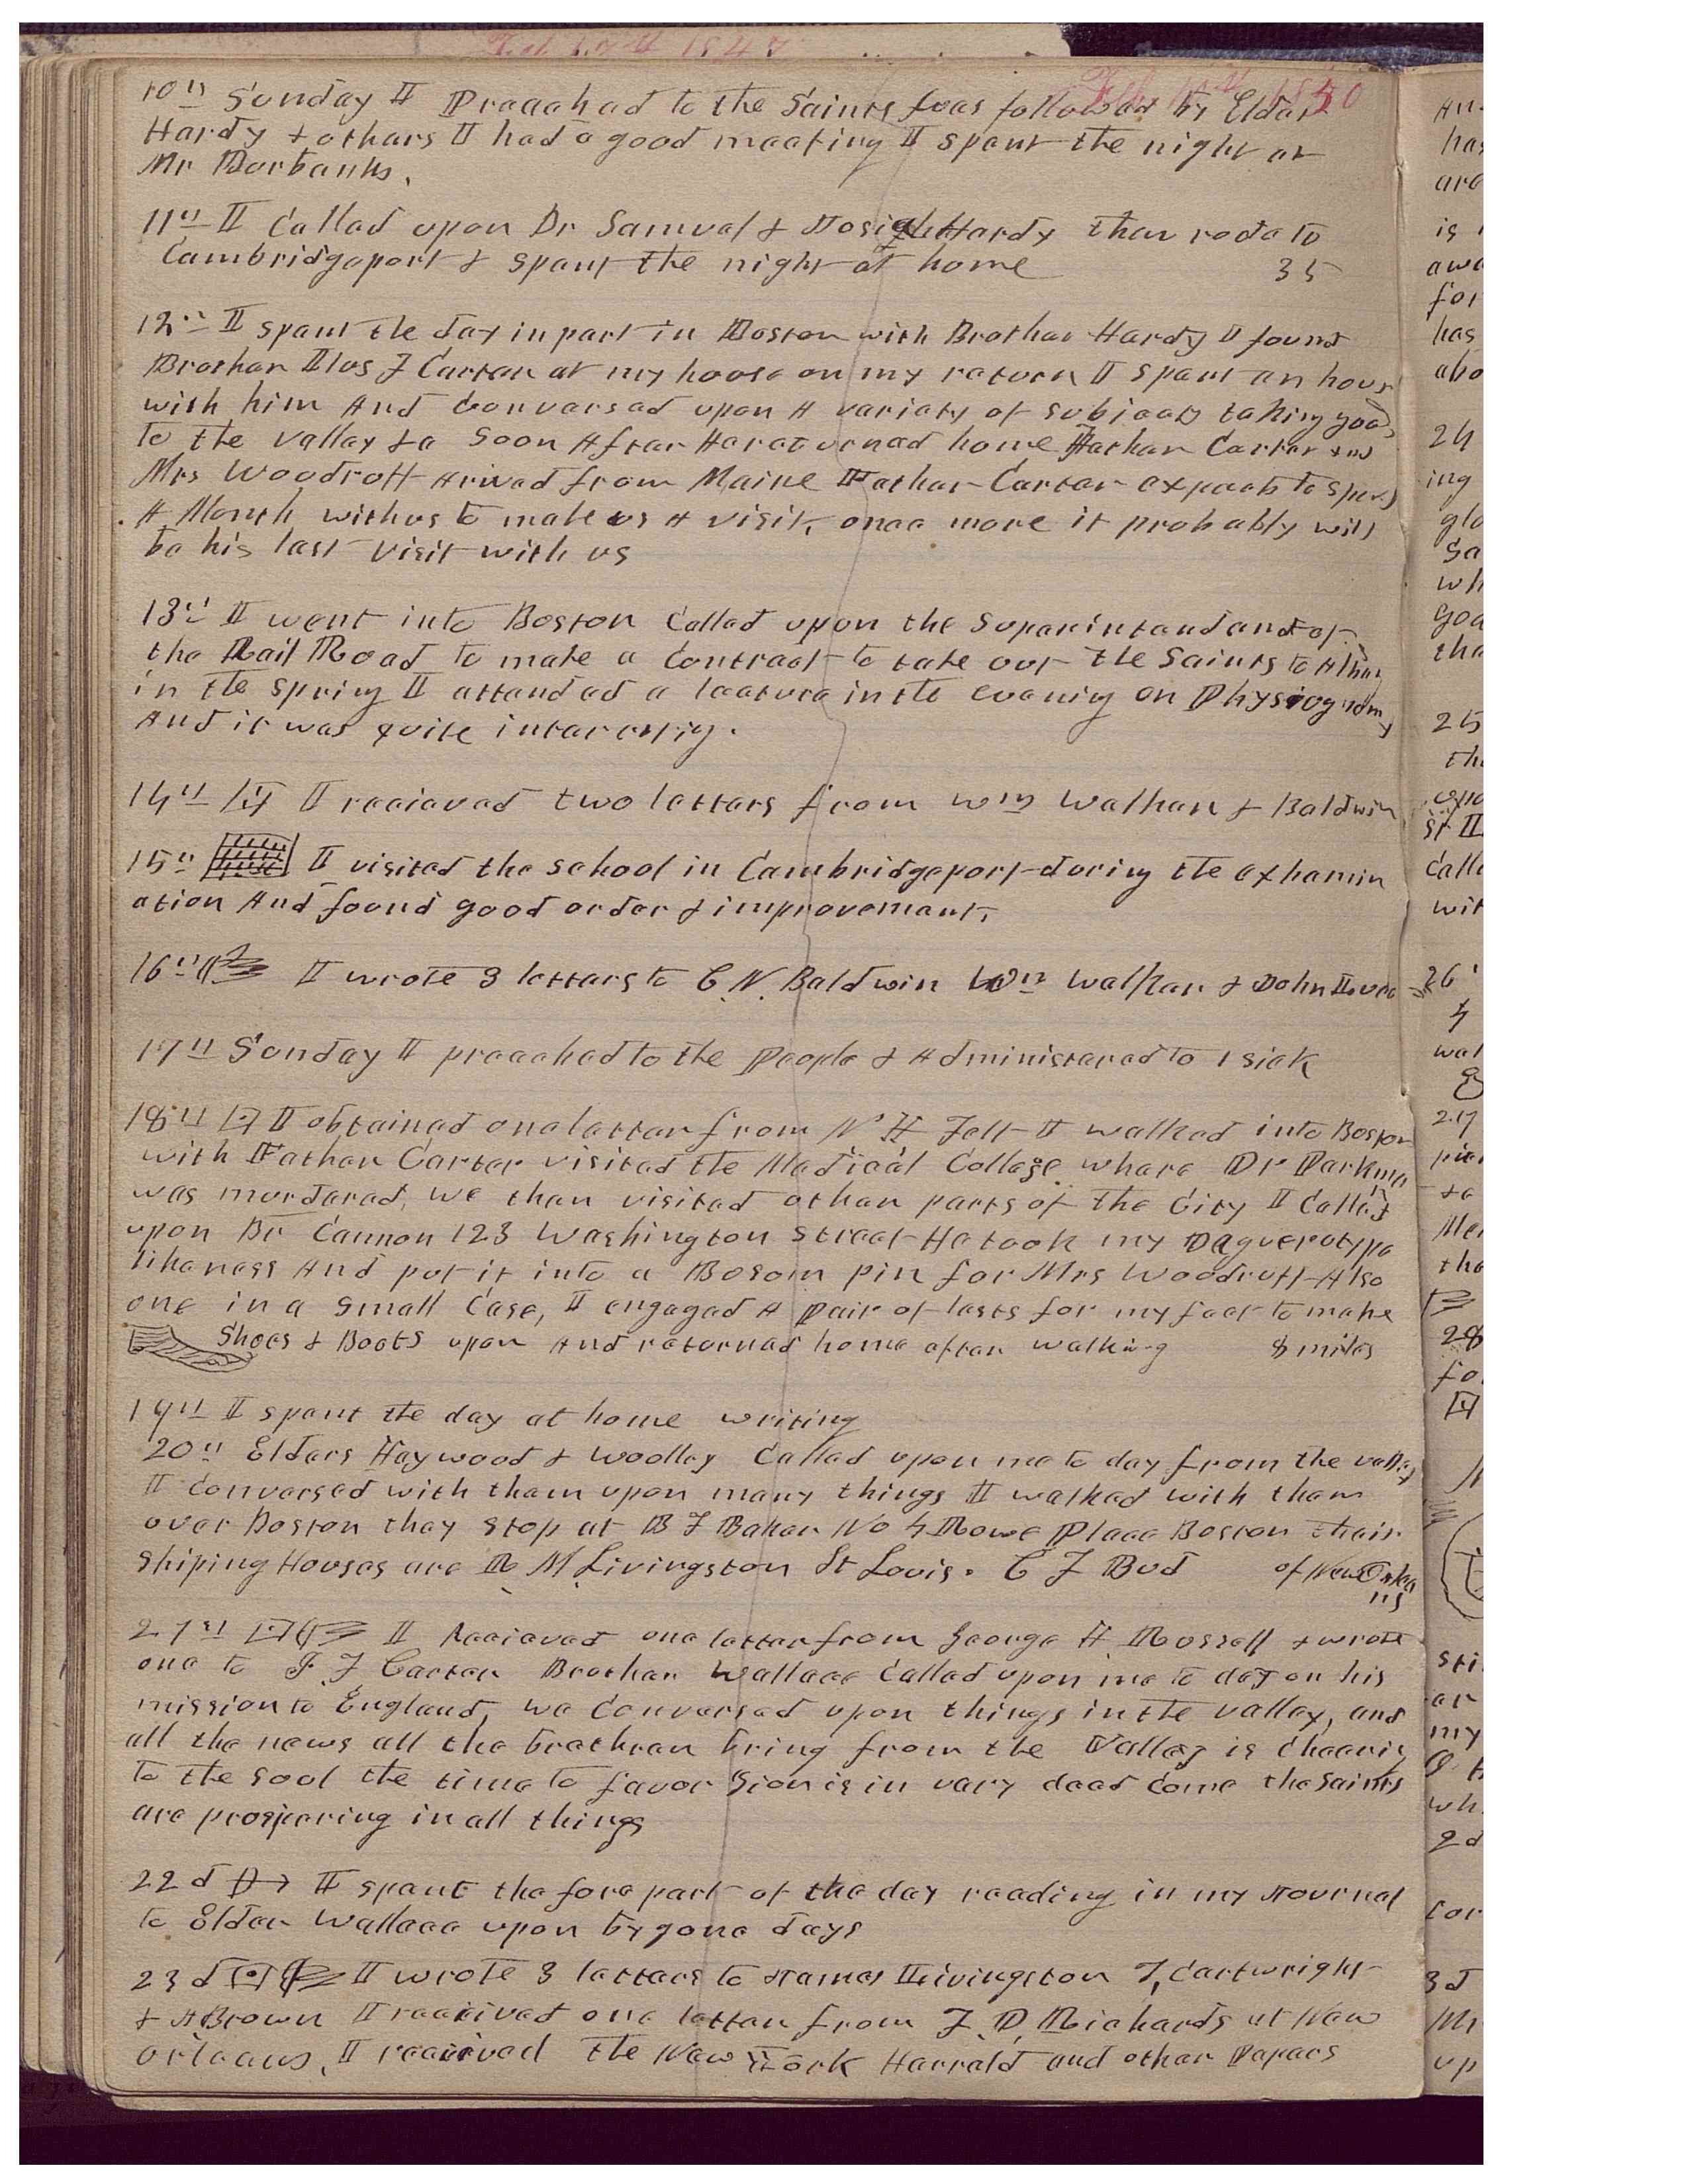 Feb 10th 1850
10th Sunday I Preached to the Saints & was followed by Elder
Hardy & others I had a good meeting I spent the night at
Mr Burbanks.
11th I Called upon Dr Samuel & Josiah Hardy then rode to
Cambridgeport & spent the night at home 35
12th I spent the day in part in Boston with Brother Hardy I found
Brother Ilus F Carter at my house on my return I spent an hour
with him And Conversed upon A variety of subjects taking goods
to the valley &c Soon After He returned home Father Carter and
Mrs Woodruff Arived from Maine Father Carter expects to spend
A Month with us to make us A visit, once more it probably will
be his last visit with us
13th I went into Boston Called upon the Superintendant of
the Rail Road to make a Contract to take out the Saints to Albany
in the spring I attended a lecture in the evening on Physiognomy
And it was quite interesting.
14th I received two letters from Wm Walker & Baldwin
15th I visited the school in Cambridgeport during the exhamin
ation And found good order & improvement,
16th I wrote 3 letters to C. N. Baldwin Wm Walker & John
17th Sunday I preached to the People & Administered to 1 sick
18th I obtained one letter from N H Felt I walked into Boston
with Father Carter visited the Medical College where Dr Parkman
was murdered, we then visited other parts of the City I Called
upon Br Cannon 123 Washington Street He took my Daguerotype
likeness And put it into a Bosom pin for Mrs Woodruff Also
one in a small Case, I engaged A pair of lasts for my feet to make
Shoes & Boots upon And returned home after walking 8 miles
19th I spent the day at home writing
20th Elders Haywood & Woolley Called upon me to day from the valley
I Conversed with them upon many things I walked with them
over Boston they stop at B F Baker No 4 Rowe Place Boston their
Shiping Houses are R M Livingston St Louis. C J Bud of New Orlea
ns
21st I Received one letter from George H Russell & wrote
one to I. F Carter Brother Wallace Called upon me to day on his
mission to England, we Conversed upon things in the valley, and
all the news all the brethren bring from the Valley is cheering
to the soul the time to favor Zion is in very deed come the Saints
are prospering in all things
22d I spent the fore part of the day reading in my Journal
to Elder Wallace upon by gone days
23d I wrote 3 letters to James Livingston T, Cartwright
& A Brown I received one letter from F. D, Richards at New
Orleans, I received the New York Harrald and other Papers